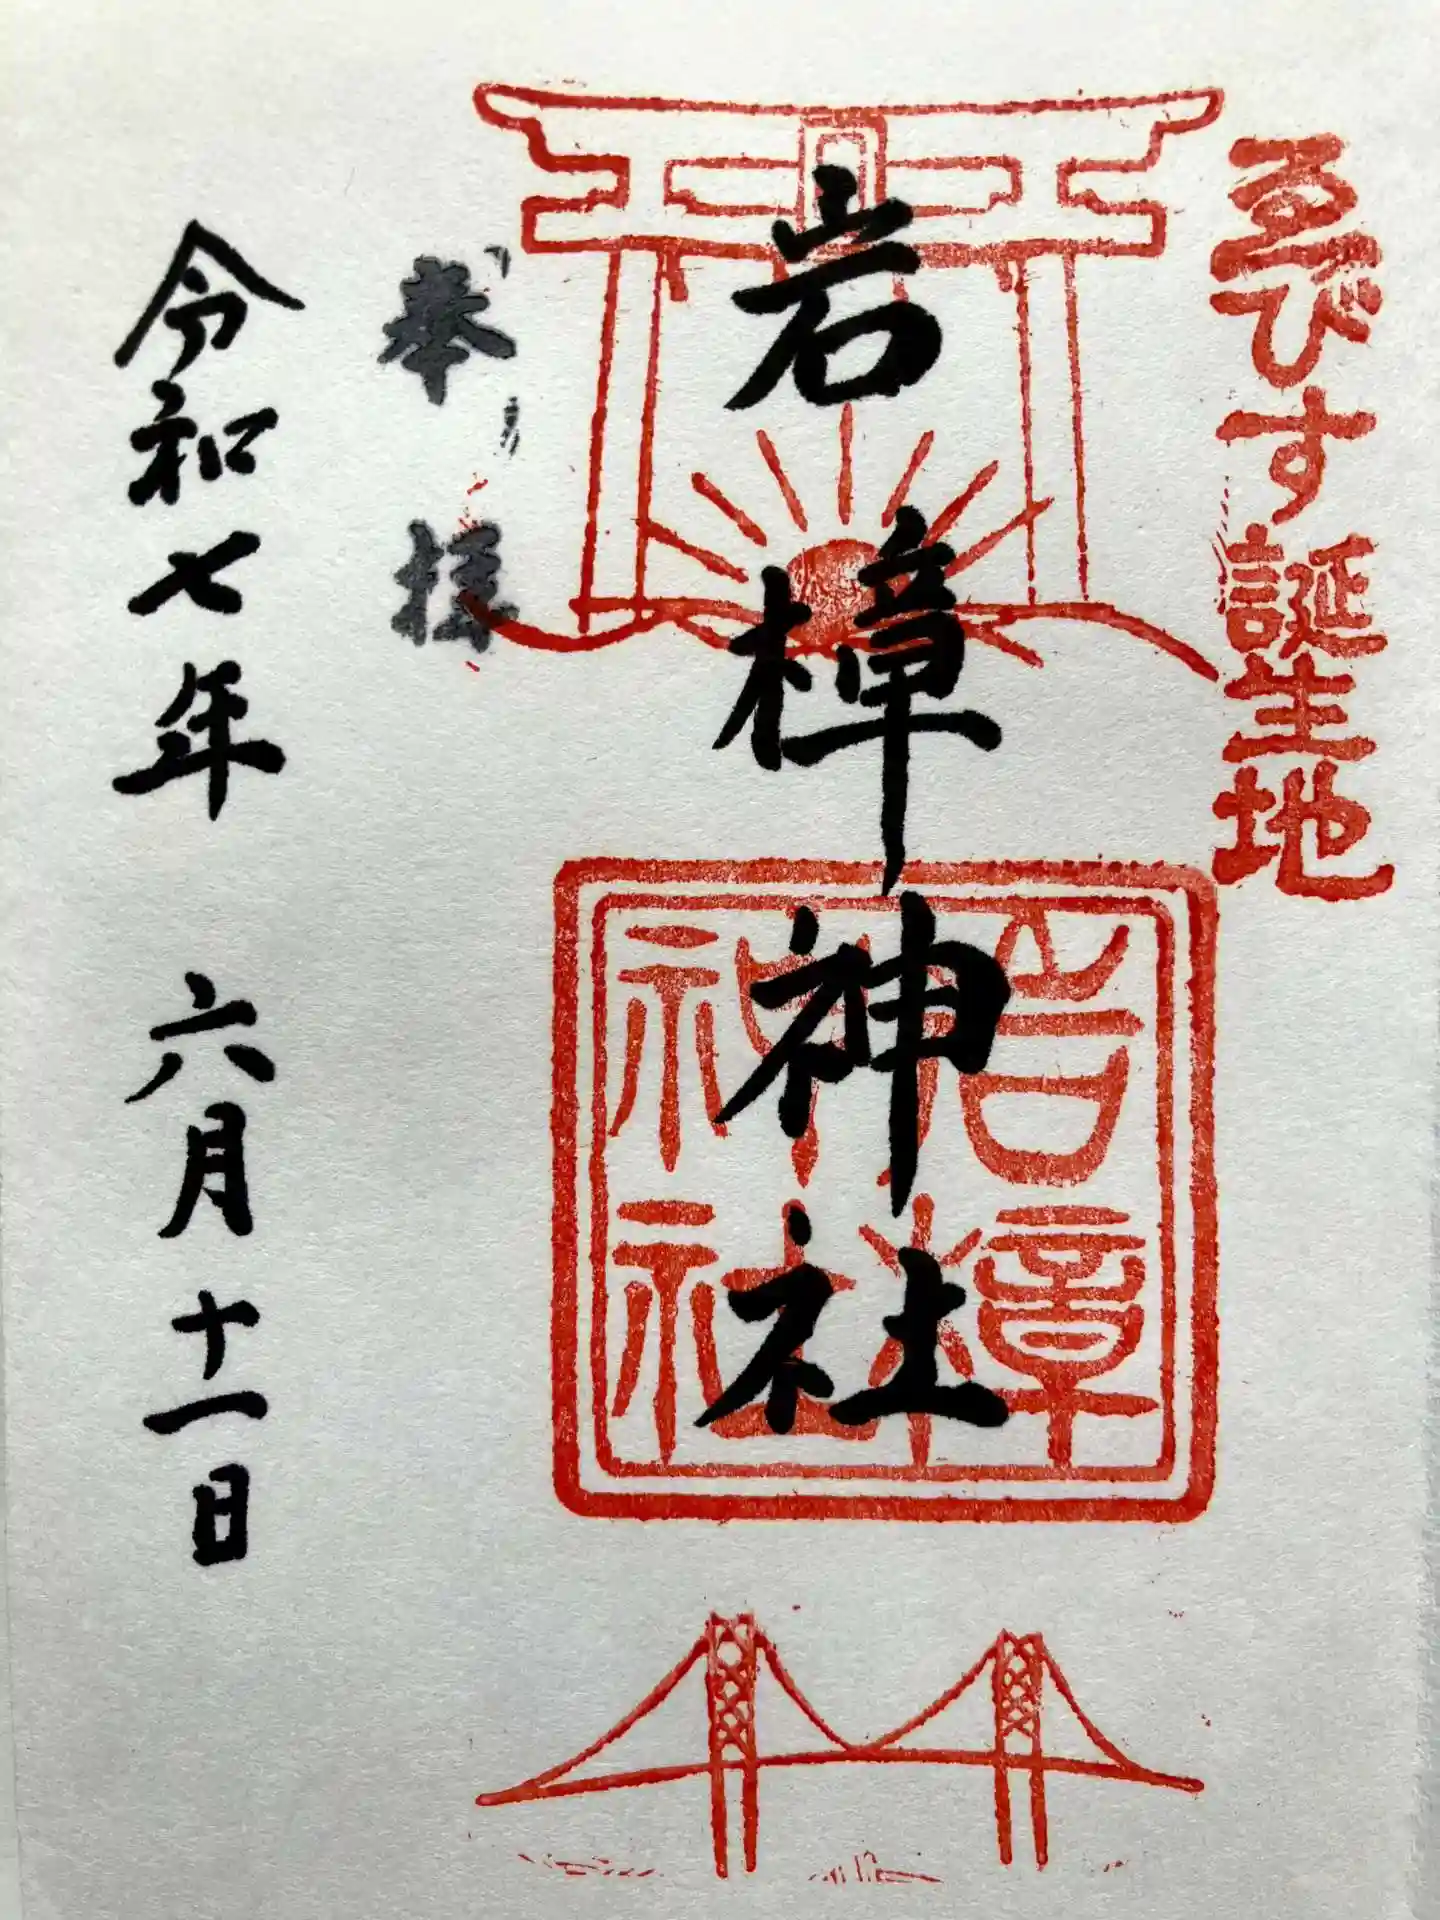 ゑびす誕生地
岩樟神社
岩樟
神社
奉拝
令和七年 六月十一日